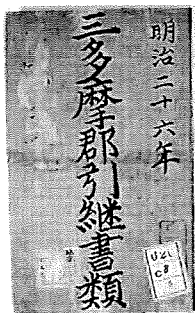 明治二十六年
三多摩郡引継書類